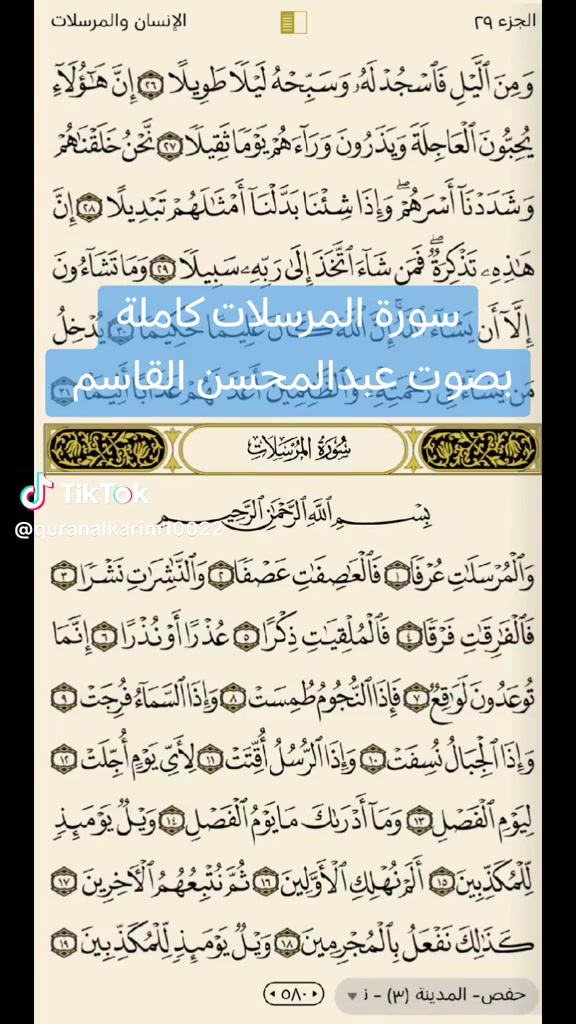 الجزء ٢٩
الإنسان والمرسلات
وَمِنَ ٱلَّيۡلِ فَٱسۡجُدۡ لَهُۥ وَسَبِّحۡهُ لَيۡلٗا طَوِيلًا ٢٦ إِنَّ هَٰٓؤُلَآءِ
يُحِبُّونَ ٱلۡعَاجِلَةَ وَيَذَرُونَ وَرَآءَهُمۡ يَوۡمٗا ثَقِيلٗا ٢٧ نَّحۡنُ خَلَقۡنَٰهُمۡ
وَشَدَدۡنَآ أَسۡرَهُمۡۖ وَإِذَا شِئۡنَا بَدَّلۡنَآ أَمۡثَٰلَهُمۡ تَبۡدِيلًا ٢٨ إِنَّ
هَٰذِهِۦ تَذۡكِرَةٞۖ فَمَن شَآءَ ٱتَّخَذَ إِلَىٰ رَبِّهِۦ سَبِيلٗا ٢٩ وَمَا تَشَآءُونَ
إِلَّآ أَن يَشَآءَ ٱللَّهُۚ إِنَّ ٱللَّهَ كَانَ عَلِيمًا حَكِيمٗا ٣٠ يُدۡخِلُ
سورة المرسلات كاملة
مَن يَشَآءُ فِي رَحۡمَتِهِۦۚ وَٱلظَّٰلِمِينَ أَعَدَّ لَهُمۡ عَذَابًا أَلِيمَۢا ٣١
بصوت عبدالمحسن القاسم
سُورَةُ المُرۡسَلَاتِ
TikTok
@quranalkarim10022
بِسۡمِ ٱللَّهِ ٱلرَّحۡمَٰنِ ٱلرَّحِيمِ
وَٱلۡمُرۡسَلَٰتِ عُرۡفٗا ١ فَٱلۡعَٰصِفَٰتِ عَصۡفٗا ٢ وَٱلنَّٰشِرَٰتِ نَشۡرٗا ٣
فَٱلۡفَٰرِقَٰتِ فَرۡقٗا ٤ فَٱلۡمُلۡقِيَٰتِ ذِكۡرًا ٥ عُذۡرًا أَوۡ نُذۡرًا ٦ إِنَّمَا
تُوعَدُونَ لَوَٰقِعٞ ٧ فَإِذَا ٱلنُّجُومُ طُمِسَتۡ ٨ وَإِذَا ٱلسَّمَآءُ فُرِجَتۡ ٩
وَإِذَا ٱلۡجِبَالُ نُسِفَتۡ ١٠ وَإِذَا ٱلرُّسُلُ أُقِّتَتۡ ١١ لِأَيِّ يَوۡمٍ أُجِّلَتۡ ١٢
لِيَوۡمِ ٱلۡفَصۡلِ ١٣ وَمَآ أَدۡرَىٰكَ مَا يَوۡمُ ٱلۡفَصۡلِ ١٤ وَيۡلٞ يَوۡمَئِذٖ
لِّلۡمُكَذِّبِينَ ١٥ أَلَمۡ نُهۡلِكِ ٱلۡأَوَّلِينَ ١٦ ثُمَّ نُتۡبِعُهُمُ ٱلۡأٓخِرِينَ ١٧
كَذَٰلِكَ نَفۡعَلُ بِٱلۡمُجۡرِمِينَ ١٨ وَيۡلٞ يَوۡمَئِذٖ لِّلۡمُكَذِّبِينَ ١٩
حفص- المدينة (٣) - ن
٥٨٠